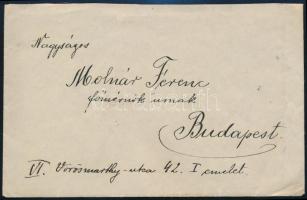 Nagyságos
Molnár Ferenc
főmérnök urnak
Budapest.
VI. Vörösmarthy-utca 42. I emelet.